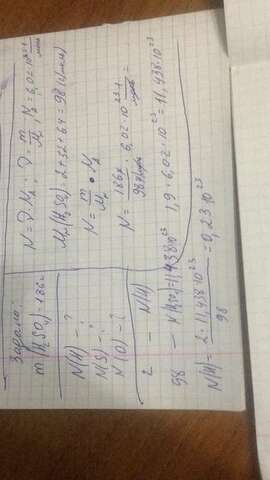 Задано:
m(H₂SO₄)=186г
N(H)-?
N(S)-?
N(O)-?
N=ν·Nₐ; ν=m/M, Nₐ=6,02·10²³ 1/моль
Mᵣ(H₂SO₄)=2+32+64=98(г/моль)
N=m/M·Nₐ
N=186г/98г/моль·6,02·10²³ 1/моль=
1,9·6,02·10²³=11,438·10²³
2 - N(H)
98 - N(H₂SO₄)=11,438·10²³
N(H)=2·11,438·10²³/98=0,23·10²³